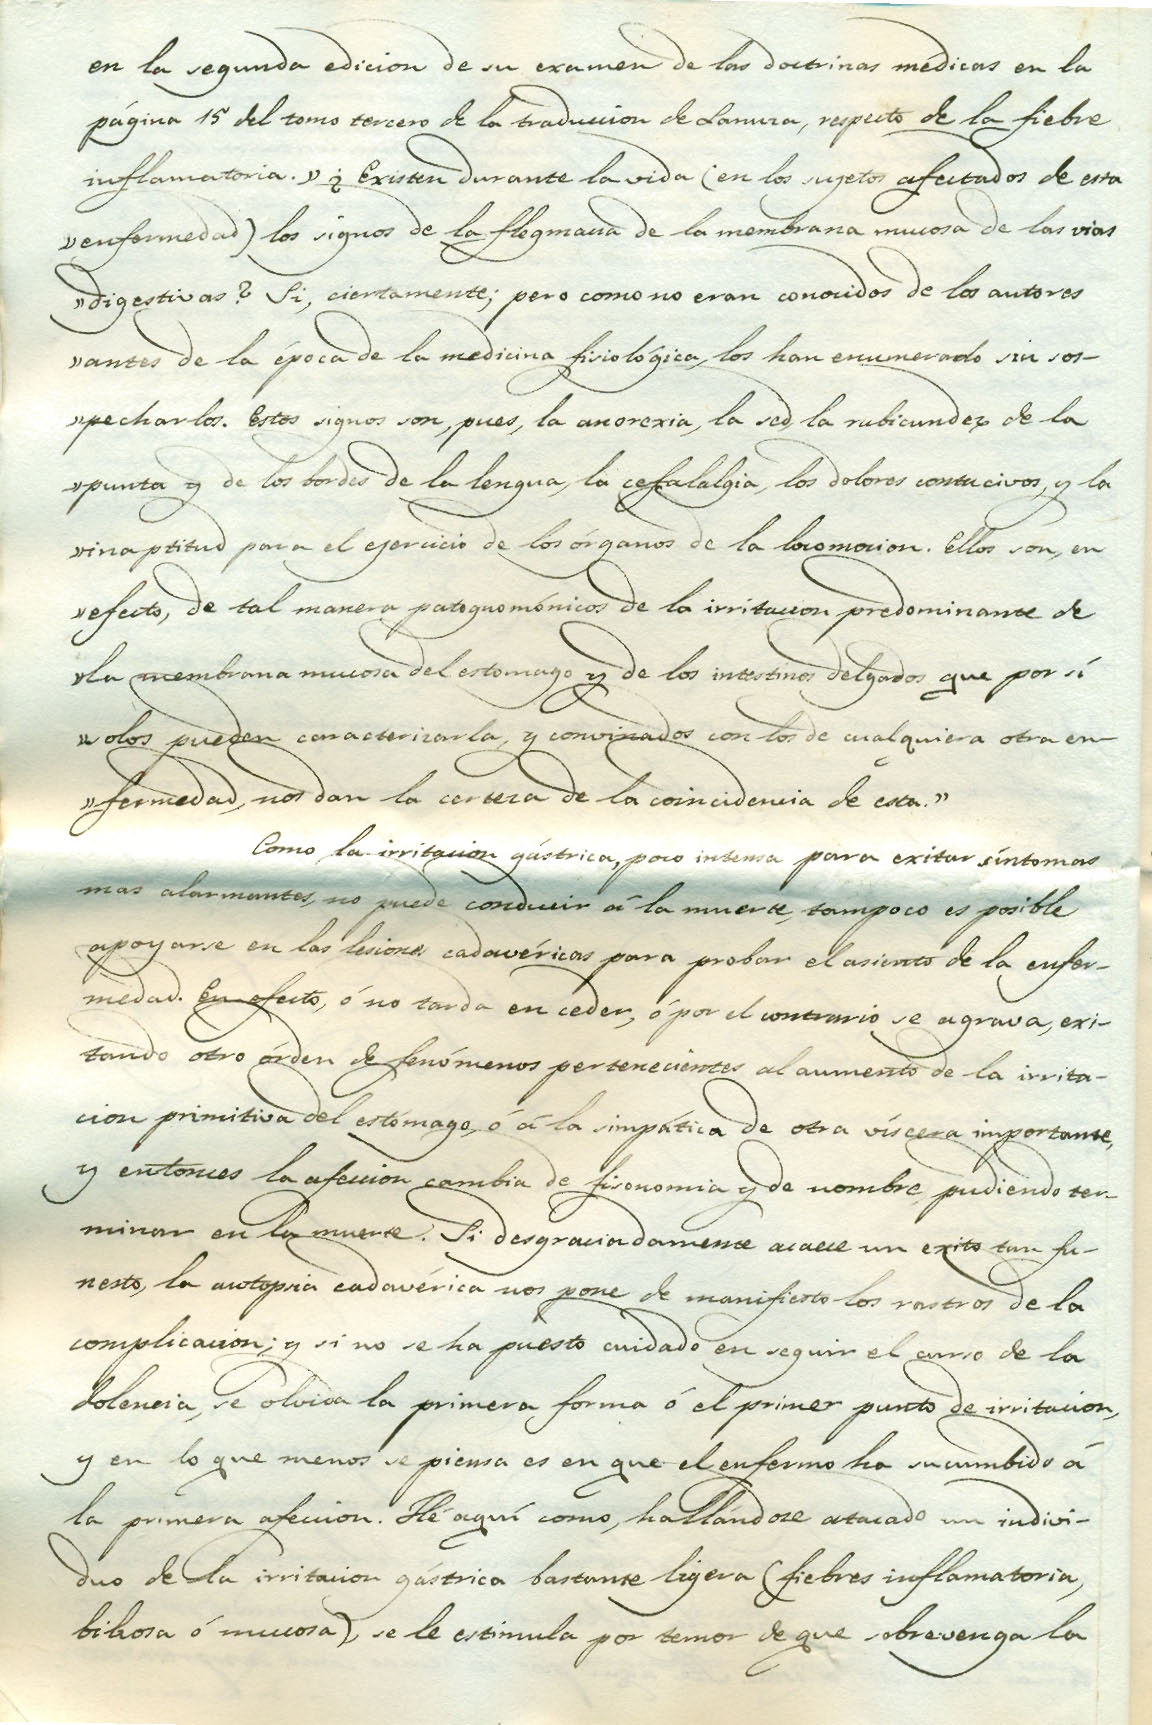 en la segunda edicion de su examen de las doctrinas médicas en la
página 15 del tomo tercero de la traduccion de Lanuza, respecto de la fiebre
inflamatoria. » ¿ Existen durante la vida (en los sujetos afectados de esta
»enfermedad) los signos de la flegmacia de la membrana mucosa de las vias
»digestivas? Si, ciertamente; pero como no eran conocidos de los autores
»antes de la época de la medicina fisiológica, los han enumerado sin sos-
»pecharlos. Estos signos son, pues, la anorexia, la sed, la rubicundez de la
»punta y de los bordes de la lengua, la cefalalgia, los dolores contucivos, y la
»inaptitud para el ejercicio de los órganos de la locomocion. Ellos son, en
»efecto, de tal manera patognomónicos de la irritacion predominante de
»la membrana mucosa del estomago y de los intestinos delgados que por sí
»olos pueden caracterizarla, y convinados con los de cualquiera otra en-
»fermedad, nos dan la certeza de la coincidencia de esta.”
Como la irritacion gástrica, poco intensa para exitar síntomas
mas alarmantes, no puede conducir á la muerte, tampoco es posible
apoyarse en las lesiones cadavéricas para probar el asiento de la enfer-
medad. En efecto, ó no tarda en ceder, ó por el contrario se agrava, exi-
tando otro órden de fenómenos pertenecientes al aumento de la irrita-
cion primitiva del estómago, ó á la simpática de otra víscera importante,
y entonces la afeccion cambia de fisonomia y de nombre, pudiendo ter-
minar en la muerte. Si desgraciadamente acaece un exito tan fu-
nesto, la autopsia cadavérica nos pone de manifiesto los rastros de la
complicacion; y si no se ha puesto cuidado en seguir el curso de la
dolencia, se olvida la primera forma ó el primer punto de irritacion,
y en lo que menos se piensa es en que el enfermo ha sucumbido á
la primera afeccion. Hé aquí como, hallándose atacado un indivi-
duo de la irritacion gástrica bastante ligera (fiebres inflamatoria,
biliosa ó mucosa), se le estimula por temor de que sobrevenga la